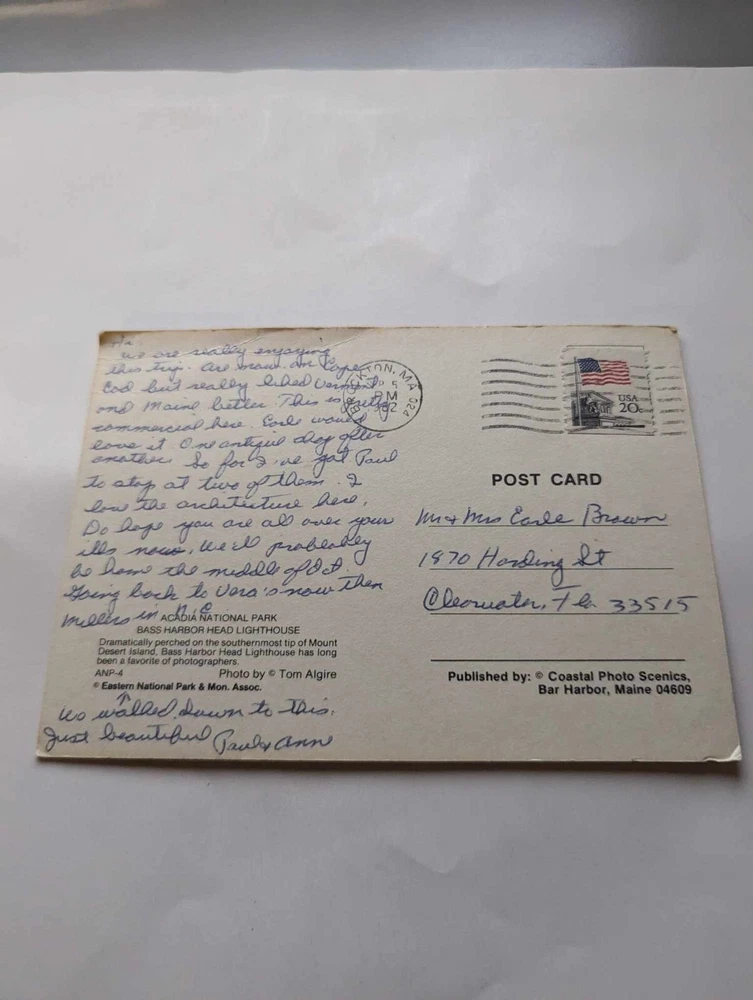 Hi,
we are really enjoying
this trip. Are now on Cape
Cod but really liked Vermont
and Maine better. This is pretty
commercial here. Earle would
love it. One antique shop after
another. So far I've got Paul
to stop at two of them. I
love the architecture here.
Do hope you are all over your
ills now. We'll probleably
be home the middle of Oct.
Going back to Vera's now then
Millers in N.C.
ACADIA NATIONAL PARK
BASS HARBOR HEAD LIGHTHOUSE
Dramatically perched on the southernmost tip of Mount
Desert Island, Bass Harbor Head Lighthouse has long
been a favorite of photographers.
ANP-4 Photo by © Tom Algire
© Eastern National Park & Mon. Assoc.
walked down to this.
Just beautiful Paul & Anne
BROCKTON, MA 024
PM
USA
20c
POST CARD
Mr & Mrs Earle Brown
1870 Harding St
Clearwater, Fla 33515
Published by: © Coastal Photo Scenics,
Bar Harbor, Maine 04609